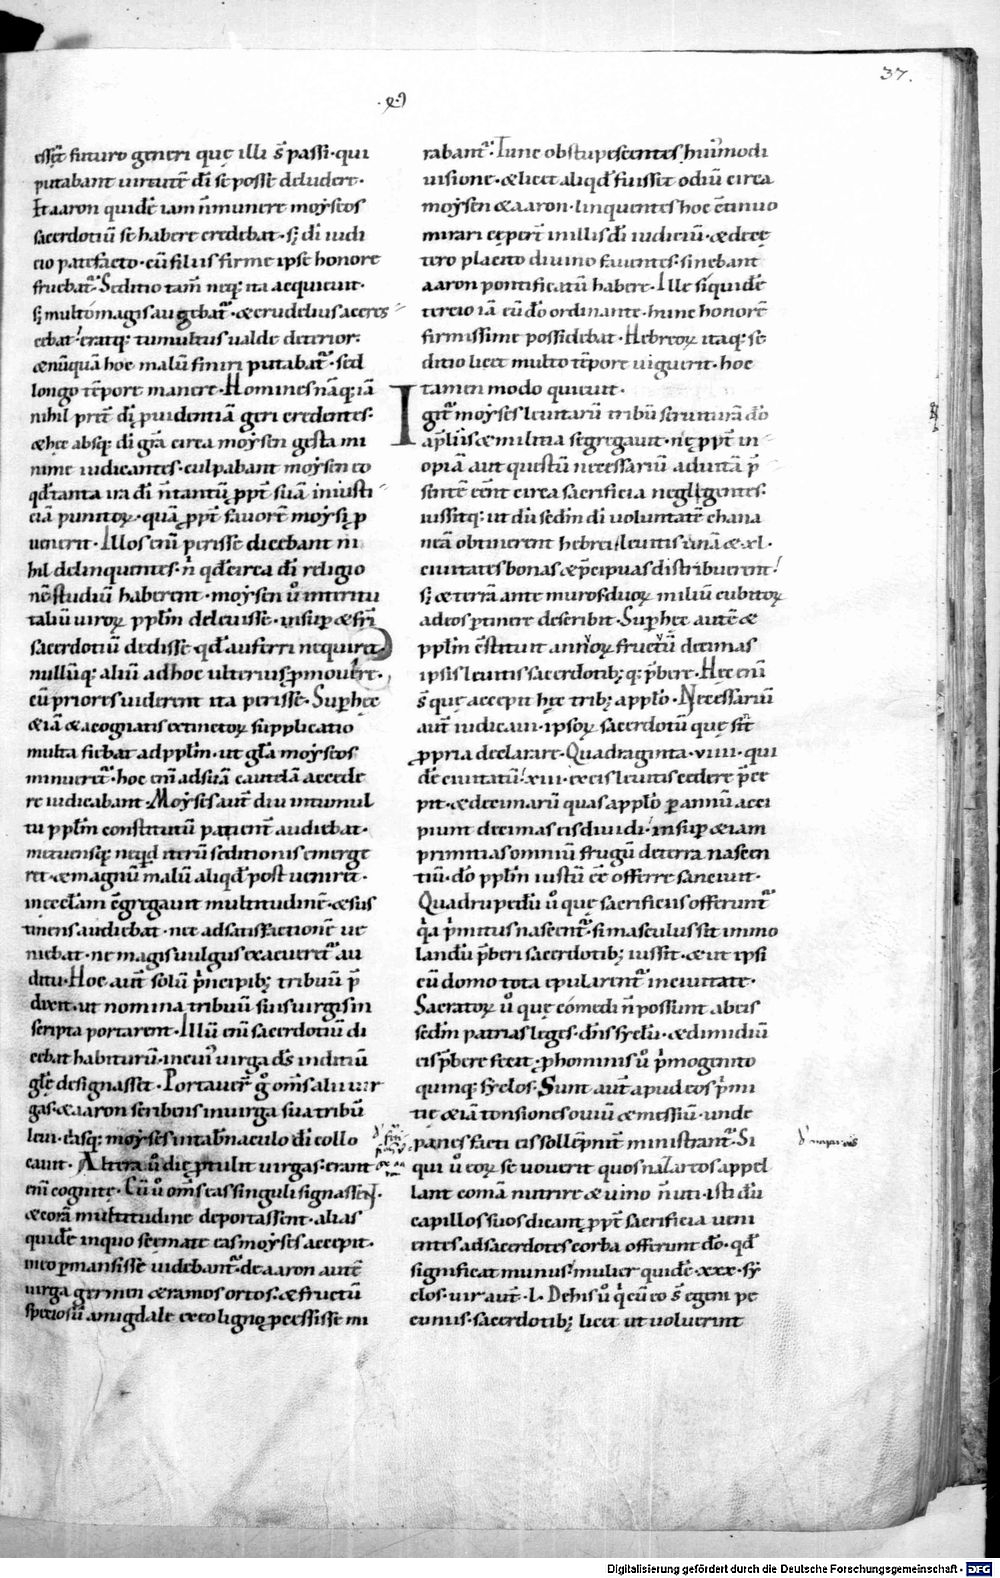 37.
esset̄ futuro generi quę illi s̄ passi · qui
putabant uirtutē dī se posse deludere ·
It aaron quidē iam n̄ munere moẏseos
sacerdotiū se habere credebat · sꝫ dī iudi
cio patefacto · cū filiis firme ipse honore
fruebat᷑ · Seditio tam̄ neq; ita acquieuit ·
sꝫ multo magis augebat᷑ · & crudelius acces
cebat · eratq; tumultus ualde deterior ·
& nūquā hoc malū finiri putabat᷑ · sed
longo tēpore manere · Homines nāq; iā
nihil pret̄ dī ꝓuidentiā geri credentes ·
& hęc absq; dī gr̄a circa moẏsen gesta mi
nime iudicantes · culpabant moẏsen eo
qd̄ tanta ira dī n̄ tantū ꝓpt̄ suā iniusti
ciā punitoꝝ · quā ꝓpt̄ fauorē moẏsi ꝓ
uenerit · Illos enī perisse dicebant ni
hil delinquentes · n̄ qd̄ circa dī religio
nē studiū haberent · moẏsen ů interitu
taliū uiroꝝ pplm̄ deleuisse · insuꝑ & frī
sacerdotiū dedisse · qd̄ auferri nequiret ·
nullūq; aliū ad hoc ulterius ꝓmoueret ·
cū priores uiderent ita perisse · Suꝑ hęc
& iā & a cognatis extinctoꝝ supplicatio
multa fiebat ad pplm̄ · ut gl̄a moẏseos
minueret᷑ · hoc enī ad suā cautelā accede
re iudicabant · Moẏses aut̄ diu in tumul
tu pplm̄ constitutū patient̄ audiebat ·
metuensq; ne qd̄ iterū seditionis emerge
ret · & magnū malū aliqd̄ post ueniret ·
in ęcclam c̄gregauit multitudinē · & sus
tinens audiebat · nec ad satisfactionē ue
niebat · ne magis uulgus exacueret᷑ au
ditu · Hoc aut̄ solū principibꝫ tribuū p̄
dixit · ut nomina tribuū suis uirgis in
scripta portarent · Illū enī sacerdotiū di
cebat habiturū · in cui᷒ uirga ds̄ inditiū
glę designasset · Portauer̄ g̊ om̄s alii uir
gas · & aaron scribens in uirga sua tribū
leui · easq; moẏses in tabnaculo dī collo
cauit · Altera ů die ꝓtulit uirgas · erant
enī cognitę · Cū ů om̄s eas singuli signassent ·
& corā multitudine deportassent · alias
quidē in quo scemate eas moẏses accepit ·
in eo ꝑmansisse uidebant᷑ · de aaron autē
uirga germen & ramos ortos · & fructū
speciosū amigdale ex eo ligno ꝓcessisse mi
rabant᷑ · Tunc obstupescentes hui᷒modi
uisione · & licet aliqd̄ fuisset odiū circa
moẏsen & aaron · linquentes hoc c̄tinuo
mirari cepert̄ in illis dī iudiciū · & de cę
tero placito diuino fauentes · sinebant
aaron pontificatū habere · Ille siquidē
tercio iā eū dō ordinante · hunc honorē
firmissime possidebat · Hebreoꝝ itaq; se
ditio licet multo tēpore uiguerit · hoc
tamen modo quieuit ·
Igit᷑ moẏses leuitarū tribū seruiturā dō
a plīis & militia segregauit · ne ꝓpt̄ in
opiā aut questū necessariū ad uitā p̄
sentē eēnt circa sacrificia neglegentes ·
iussitq; ut dū sedm̄ dī uoluntatē chana
neā obtinerent hebrei · leuitis unā & xl ·
ciuitates bonas & p̄cipuas distribuerent ·
sꝫ & terrā ante muros duoꝝ miliū cubitoꝝ
ad eos ꝑtinere describit · Suꝑ hęc autē &
pplm̄ c̄stituit annoꝝ fructuū decimas
ipsis leuitis sacerdotibꝫ q; p̄bere · Hęc enī
s̄ quę accepit hęc tribꝫ a pplo · Necessariū
aut̄ iudicaui · ipsoꝝ sacerdotū quę sīt
ꝓpria declarare · Quadraginta · viii · qui
dē ciuitatū · xiii · ex eis leuitis cedere p̄ce
pit · & decimarū quas a pplo ꝑ annū acci
piunt decimas eis diuidi · insuꝑ & iam
primitias omniū frugū de terra nascen
tiū · dō pplm̄ iustū eē offerre sanciuit ·
Quadrupedū ů quę sacrificiis offerunt᷑
q̄a primitus nascent᷑ · si masculus sit immo
landū p̄beri sacerdotibꝫ iussit · & ut ipsi
cū domo tota epularent᷑ in ciuitate ·
Sacratoꝝ ů quę cómedi n̄ possunt ab eis
sedm̄ patrias leges · dn̄s sẏclū · & dimidiū
eis p̄bere fecit · ꝓ hominis ů primogenito
quinq; sẏclos · Sunt aut̄ apud eos primi
tię & iā tonsiones ouiū & messiū · unde
panes facti eis sollēpnit̄ ministrant᷑ · Si
qui ů eoꝝ se uouerit quos nazareos appel
lant comā nutrire & uino n̄ uti · isti dū
capillos suos dicant ꝓpt̄ sacrificia ueni
entes ad sacerdotes corba offerunt dō · qd̄
significat munus · mulier quidē · xxx · sẏ
clos · uir aut̄ · l · De his ů q̄ cū eo s̄ egeni pe
cuniis · sacerdotibꝫ licet ut uoluerint
Digitalisierung gefördert durch die Deutsche Forschungsgemeinschaft · DFG